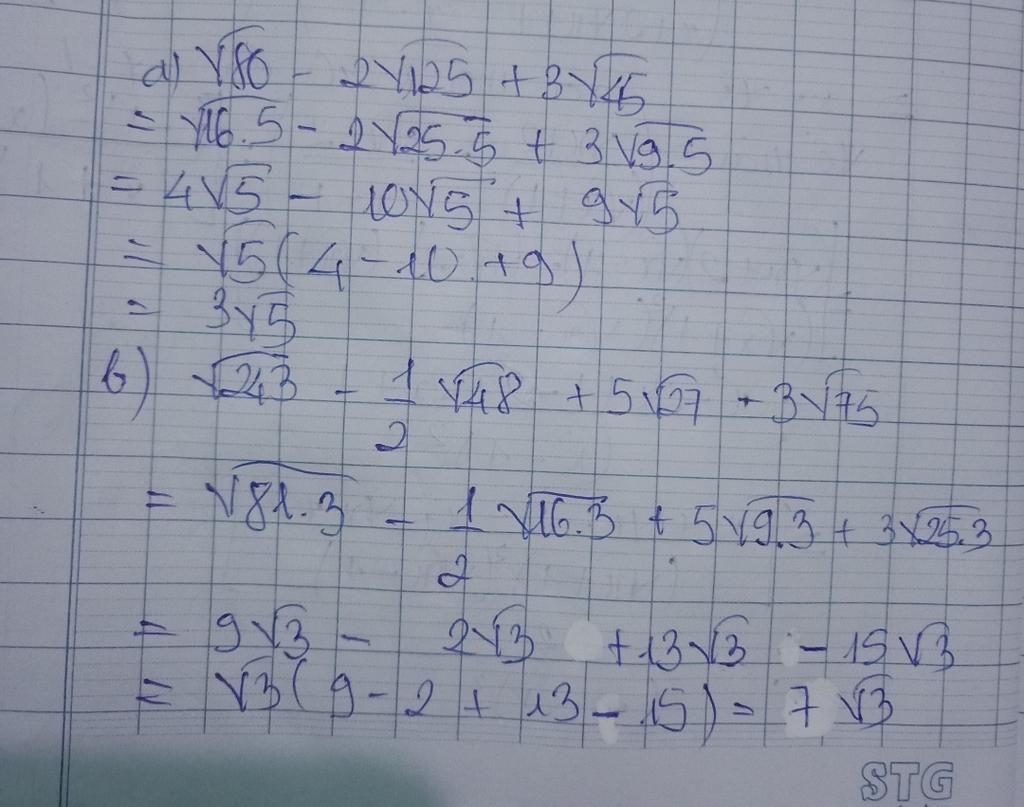 a) √80 - 2√125 + 3√45
= √16.5 - 2√25.5 + 3√9.5
= 4√5 - 10√5 + 9√5
= √5(4-10+9)
= 3√5
b) √243 - 1/2 √48 + 5√27 - 3√75
= √81.3 - 1/2 √16.3 + 5√9.3 + 3√25.3
= 9√3 - 2√3 + 13√3 - 15√3
= √3(9-2+13-15) = 7√3
STG